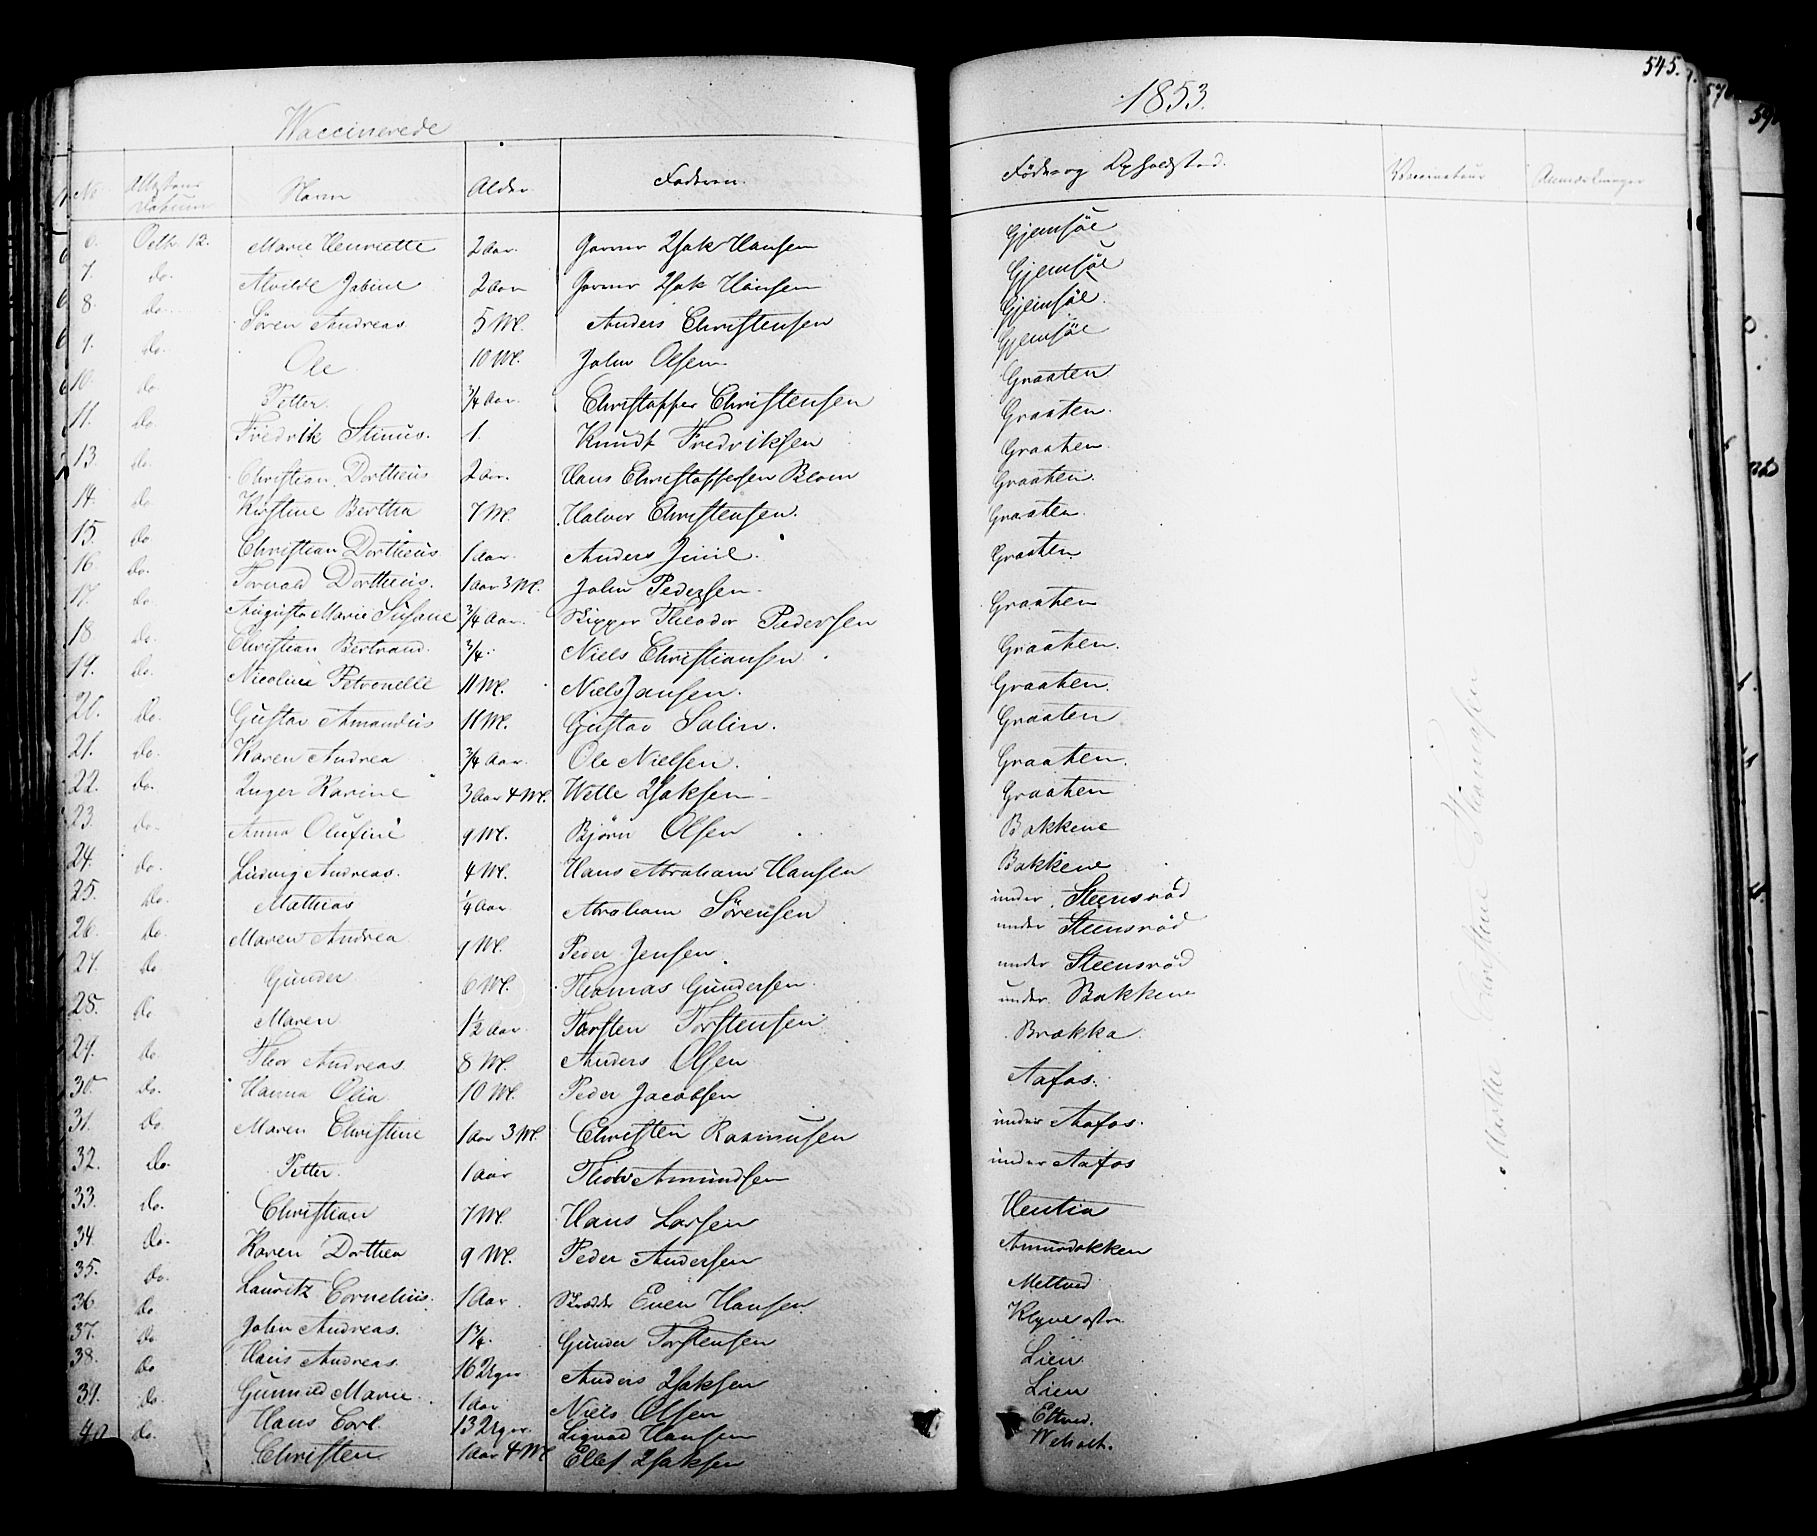 Waccinerede
1853.
545.
No Attestens Datum Navn Alder Fadren Føde og Opholdsted Vaccinateur Anmerkninger
6. Octbr. 12. Marie Henriette 2 Aar Isak Hansen Gjemsöe
7. do. Alvilde Jabine 2 Aar Isak Hansen Gjemsöe
8. do. Sören Andreas 5 M. Anders Christensen Gjemsöe.
9. do. Ole 10 M. John Olsen Gjemsöe
10. do Petter 3/4 Aar. Christopher Christensen Graaten
11. do. Fredrik Stinus. 1. Knudt Fredriksen Graaten.
13 do. Christian Dortheus 2 Aar. Hans Christophersen Blom Graaten
14. do Kirstine Bertha 7 M. Halvor Christensen. Graaten.
15. do Christian Dortheus 1 Aar. Anders Graaten.
16. do. Torvald Dortheus. 1 Aar 3 M. John Pedersen. Graaten
17. do. Augusta Marie Susane 3/4 Aar. Theodor Pedersen Graaten
18 do. Christian Bertrand. 3/4. Niels Christiansen. Graaten.
19. do. Nicoline Petronelle 11 M. Niels Jansen. Graaten.
20. do. Gustav Amandus 11 M. Gustav Salin. Graaten
21. do. Karen Andrea 3/4 Aar. Ole Nielsen. Graaten.
22. do. Inger Karine 3 Aar 4 M. Welle Isaksen Graaten
23. do. Anna Olufine 9 M. Björn Olsen Bakkene
24. do. Ludvig Andreas. 4 M. Hans Abraham Hansen Bakkene
25. do. Mathias 1/4 Aar Abraham Sörensen under Steensröd
26. do. Maren Andrea 1 M. Peder Jensen. under Steensröd
27. do Gunder 6 M. Thomas Gundersen. under Steensröd
28. do Maren 1 1/2 Aar. Torsten Torstensen under Bakkene
29. do Thor Andreas. 8 M. Anders Olsen Brækka.
30. do. Hanna Olia 10 M. Peder Jacobsen Aafos.
31. do. Maren Christine 1 Aar 3 M. Christen Rasmusen under Aafos.
32. do. Petter 1 Aar Thov Amundsen under Aafos
33. do. Christian 7 M. Hans Larsen
34. do. Karen Dorthea 9 M. Peder Andersen
35. do. Lauritz Cornelius. 1 Aar. Even Hansen
36. do John Andreas. 1 3/4. Gunder Torstensen Klyve
37. do Hans Andreas 16 Uger Anders Isaksen Lien
38. do Gunnild Marie. 1 Aar Niels Olsen Lien
39. do. Hans Carl. 13 Uger. Hansen
40 do. Christen 1 Aar 4 M Ellef Isaksen